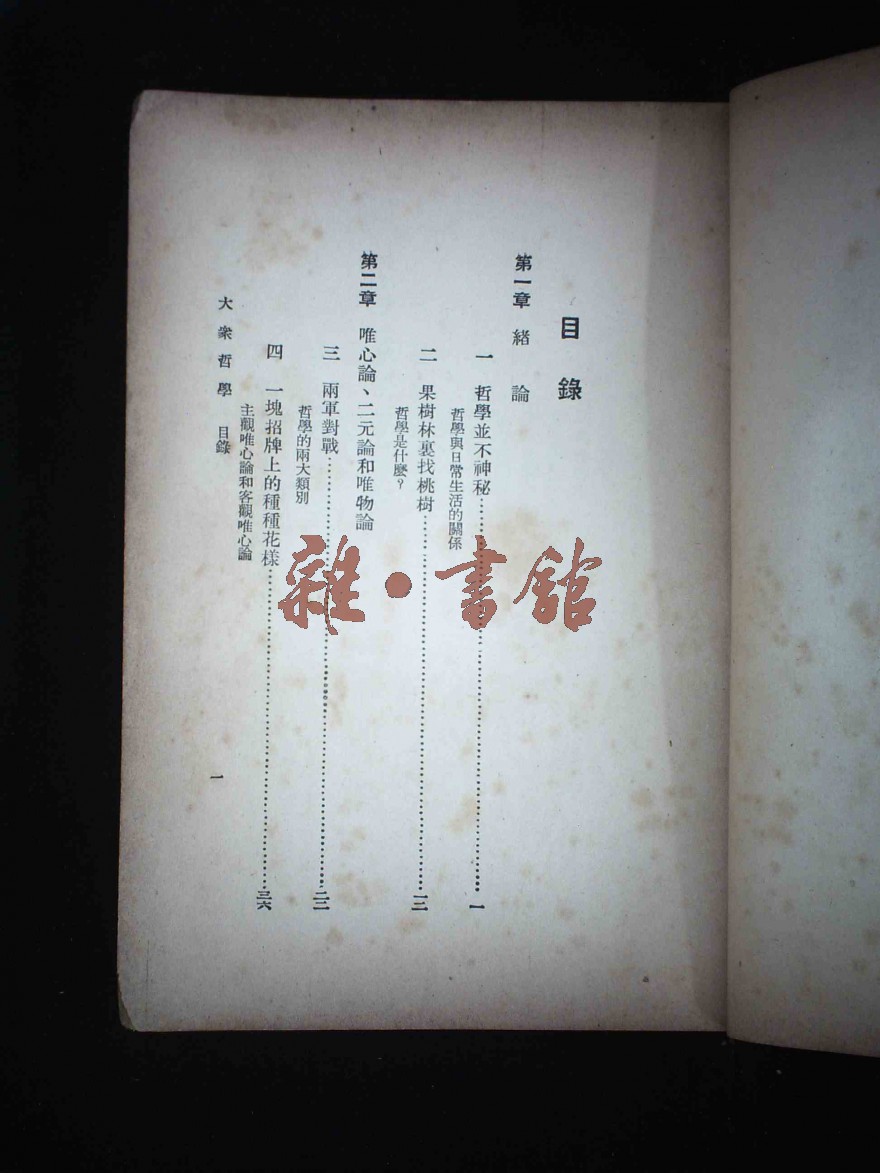 目錄
第一章 緒論
一 哲學並不神秘……一
哲學與日常生活的關係
二 果樹林裏找桃樹……一二
哲學是什麼？
第二章 唯心論、二元論和唯物論
三 兩軍對戰……二二
哲學的兩大類別
四 一塊招牌上的種種花樣……三六
主觀唯心論和客觀唯心論
大衆哲學 目錄
一
雜·書館